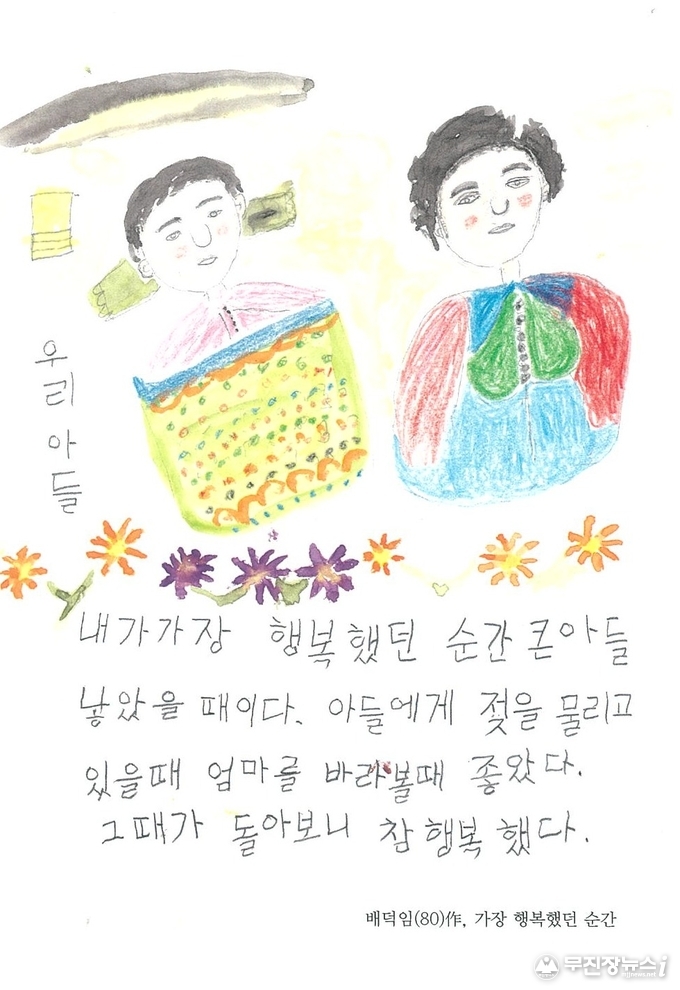 우리아들
내가가장 행복했던 순간큰아들
낳았을 때이다. 아들에게 젖을 물리고
있을때 엄마를 바라볼때 좋았다.
그때가 돌아보니 참행복했다.
배덕임(80)作, 가장 행복했던 순간
무진장뉴스i